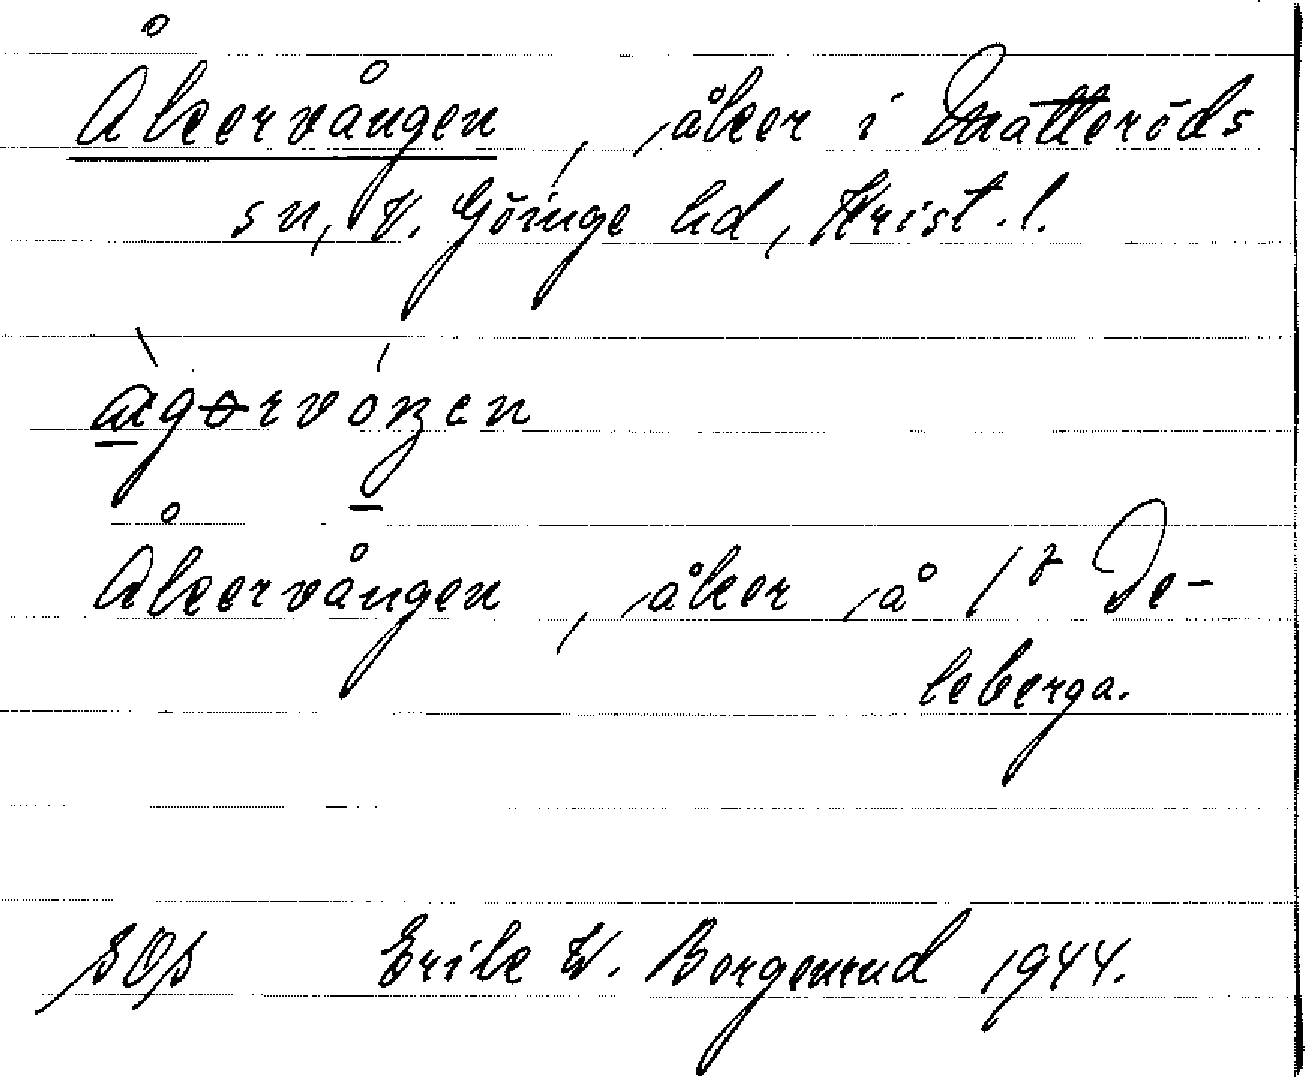 Åkervången, åker i Matteröds
sn, V. Göinge hd, Krist. l.
àgərvóŋen
Åkervången, åker å 1⁸ De-
leberga.
sOs Erik W. Borgenrud 1944.